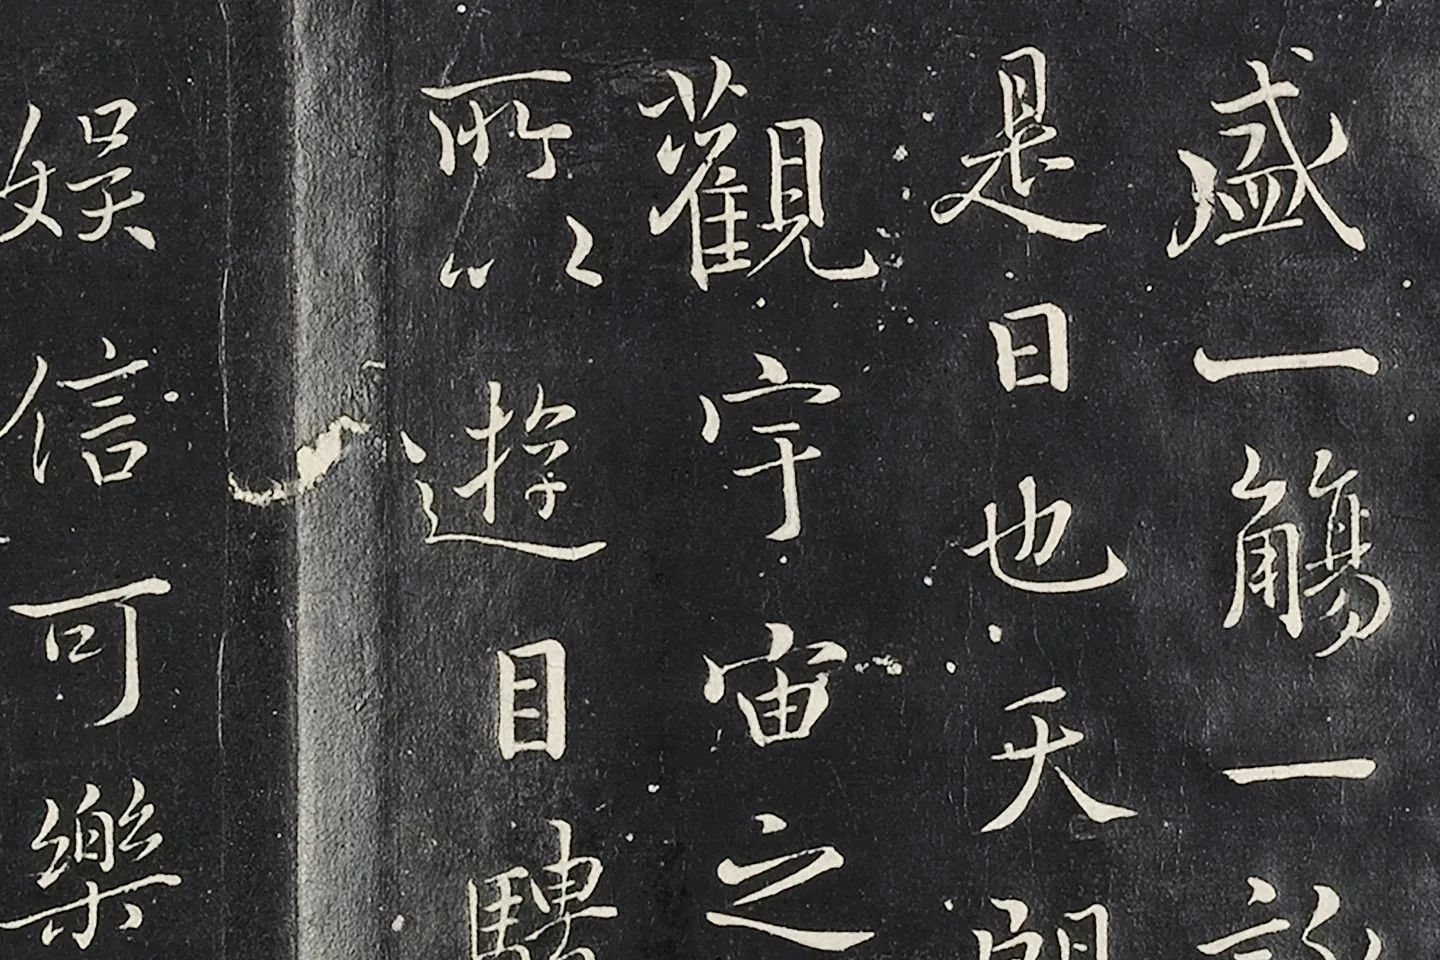 盛一觴一詠
是日也天朗
觀宇宙之
所以遊目騁
娛信可樂